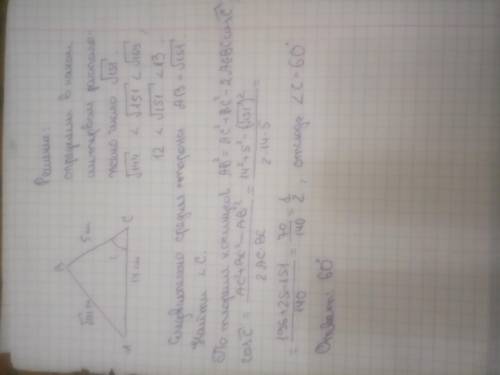 Решение:
определим в каком
интервале располо-
жено число √151.
√144 < √151 < √169
12 < √151 < 13
B
√151 см
5 см
A
14 см
C
Следовательно средняя сторона AB = √151
Найти ∠C.
По теореме косинусов AB² = AC² + BC² - 2AC·BC·cos C
cos C = (AC² + BC² - AB²) / (2 AC·BC) = (14² + 5² - (√151)²) / (2·14·5) =
= (196 + 25 - 151) / 140 = 70/140 = 1/2, отсюда ∠C = 60°
Ответ: 60°